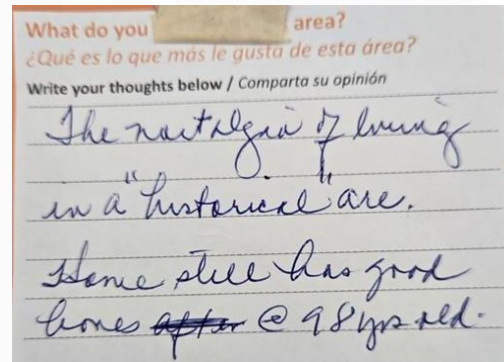 What do you area?
¿Qué es lo que más le gusta de esta área?
Write your thoughts below / Comparta su opinión
The nostalgia of living
in a "historical" are.
Home still has good
bones after @ 98 yrs old.